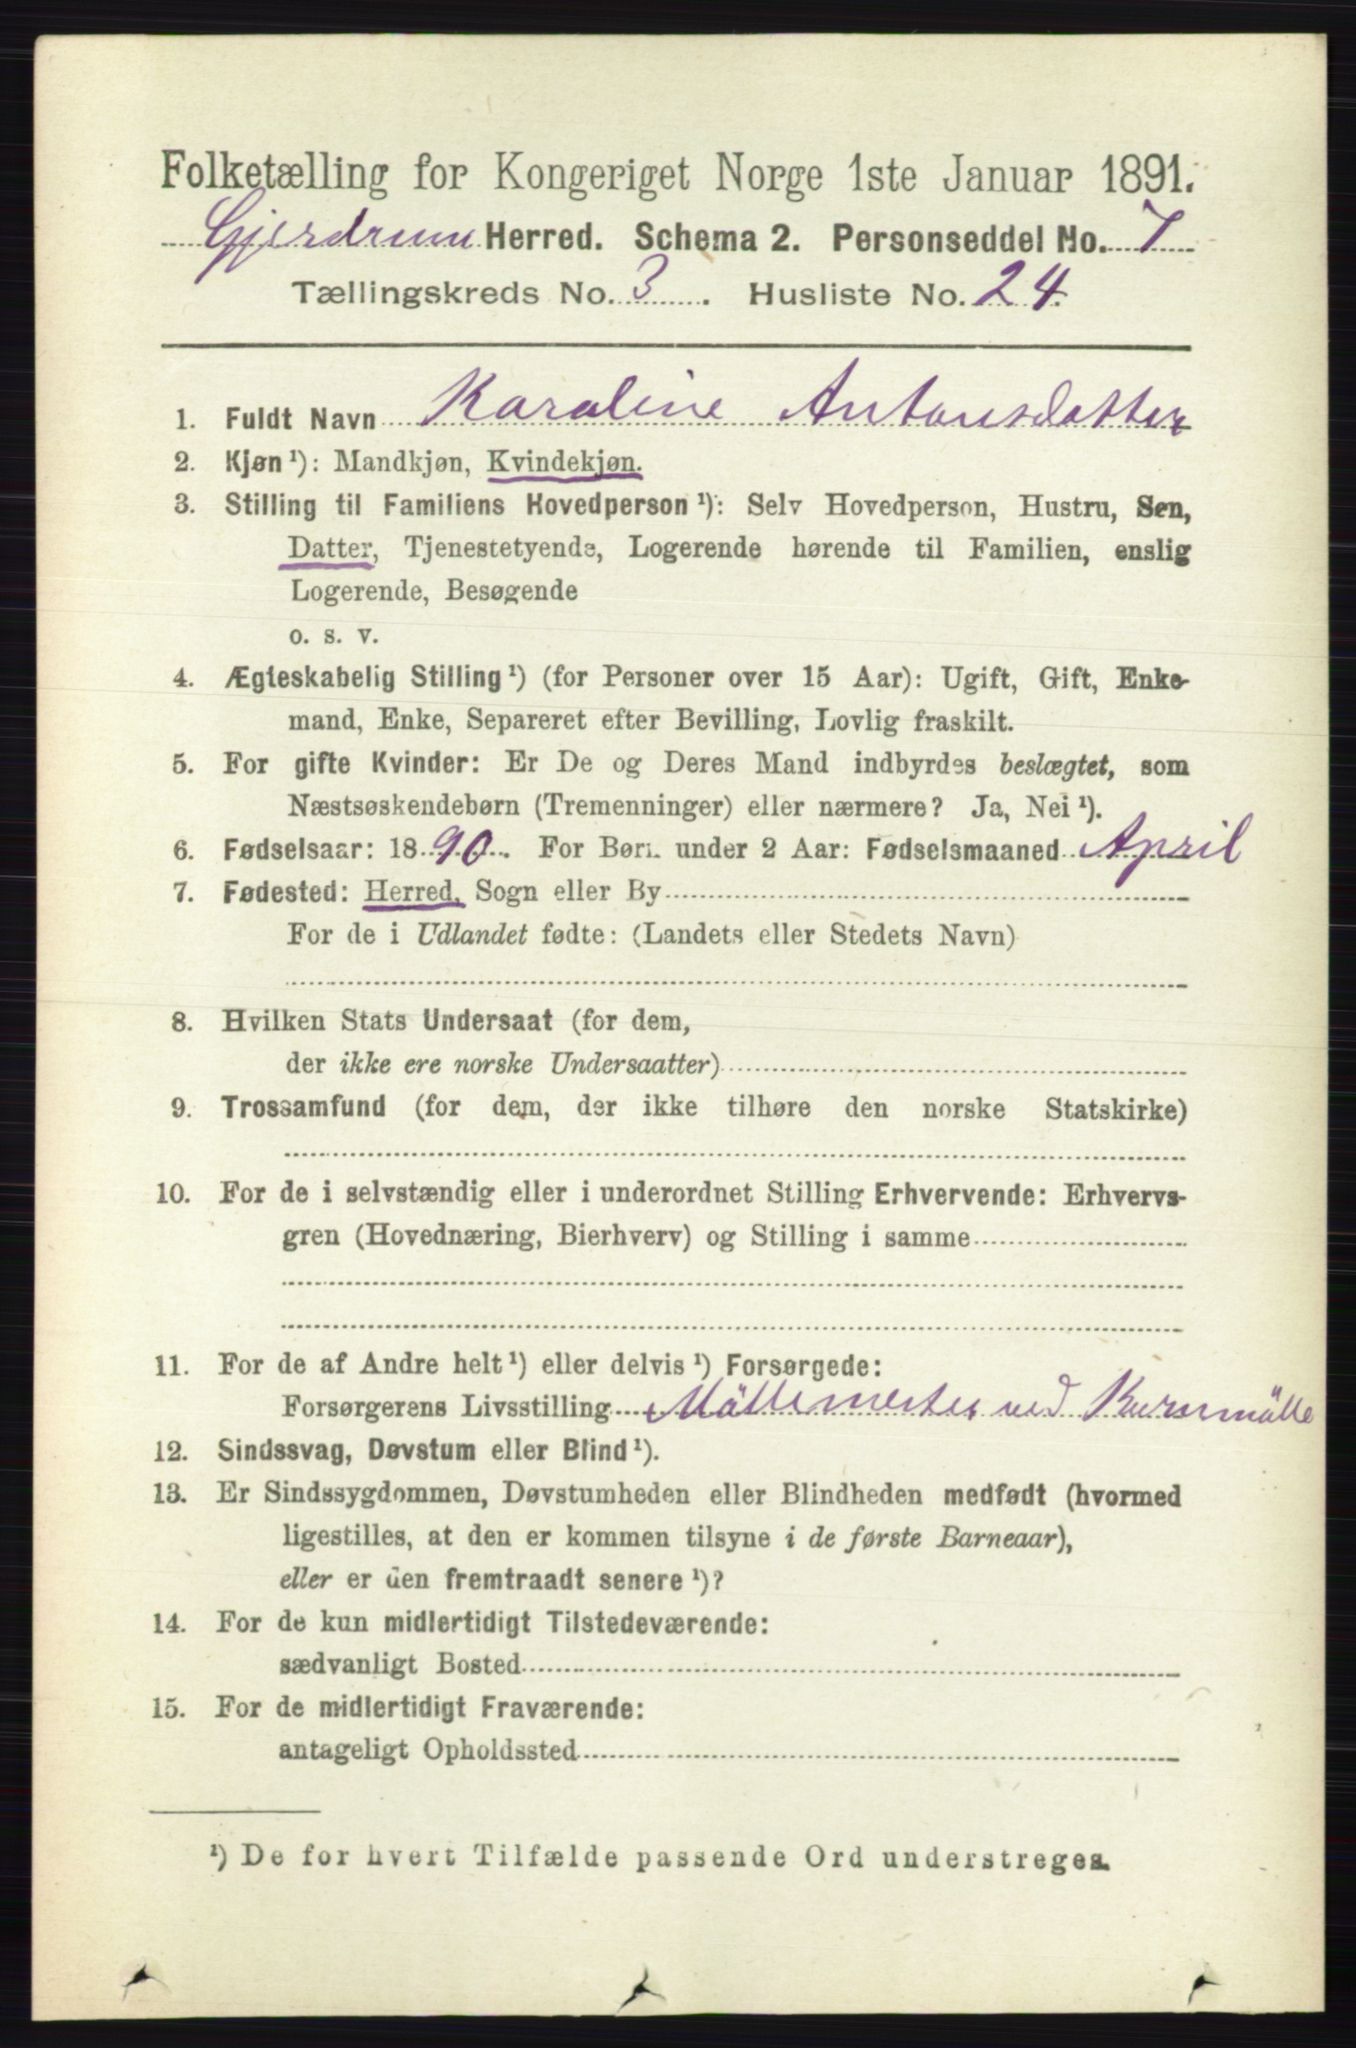 Folketælling for Kongeriget Norge 1ste Januar 1891.
Gjerdrum Herred. Schema 2. Personseddel No. 7
Tællingskreds No. 3. Husliste No. 24.
1. Fuldt Navn Karoline Antonsdatter
2. Kjøn ¹): Mandkjøn, Kvindekjøn.
3. Stilling til Familiens Hovedperson ¹): Selv Hovedperson, Hustru, Søn,
Datter, Tjenestetyende, Logerende hørende til Familien, enslig
Logerende, Besøgende
o. s. v.
4. Ægteskabelig Stilling ¹) (for Personer over 15 Aar): Ugift, Gift, Enke-
mand, Enke, Separeret efter Bevilling, Lovlig fraskilt.
5. For gifte Kvinder: Er De og Deres Mand indbyrdes beslægtet, som
Næstsøskendebørn (Tremenninger) eller nærmere? Ja, Nei ¹).
6. Fødselsaar: 1890. For Børn under 2 Aar: Fødselsmaaned April
7. Fødested: Herred, Sogn eller By
For de i Udlandet fødte: (Landets eller Stedets Navn)
8. Hvilken Stats Undersaat (for dem,
der ikke ere norske Undersaatter)
9. Trossamfund (for dem, der ikke tilhøre den norske Statskirke)
10. For de i selvstændig eller i underordnet Stilling Erhvervende: Erhvervs-
gren (Hovednæring, Bierhverv) og Stilling i samme
11. For de af Andre helt ¹) eller delvis ¹) Forsørgede:
Forsørgerens Livsstilling Möllemester ved Kornmölle
12. Sindssvag, Døvstum eller Blind ¹).
13. Er Sindssygdommen, Døvstumheden eller Blindheden medfødt (hvormed
ligestilles, at den er kommen tilsyne i de første Barneaar),
eller er den fremtraadt senere ¹)?
14. For de kun midlertidigt Tilstedeværende:
sædvanligt Bosted
15. For de midlertidigt Fraværende:
antageligt Opholdssted
¹) De for hvert Tilfælde passende Ord understreges.